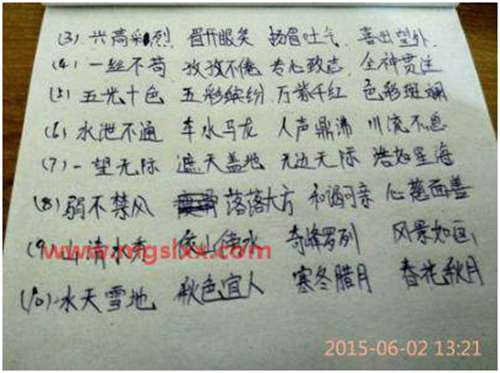 (3) 兴高彩烈 眉开眼笑 扬眉吐气 喜出望外
(4) 一丝不苟 孜孜不倦 专心致志 全神贯注
(5) 五光十色 五彩缤纷 万紫千红 色彩斑斓
(6) 水泄不通 车水马龙 人声鼎沸 川流不息
(7) 一望无际 遮天盖地 无边无际 浩如星海
(8) 弱不禁风 落落大方 和谒可亲 心慈面善
(9) 山清水秀 山 水 奇峰罗列 风景如画
www.mgslxx.com
(10) 冰天雪地 秋色宜人 寒冬腊月 春花秋月
2015-06-02 13:21